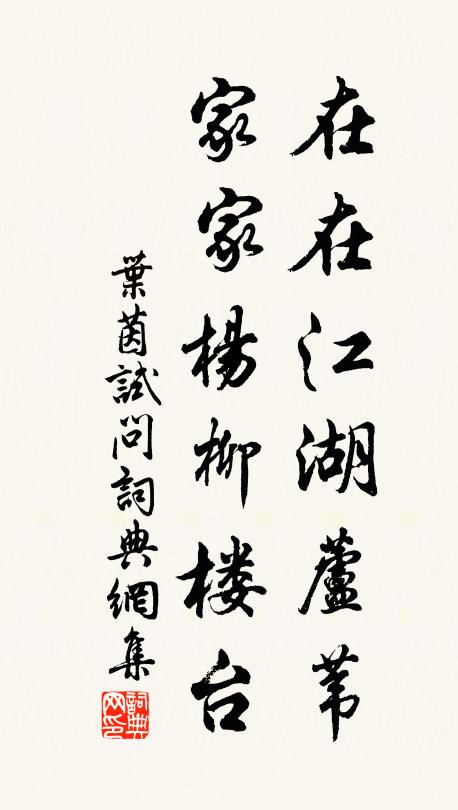 在在江湖蘆葦
家家楊柳楼台
葉茵試問詞典網集
詞典网印